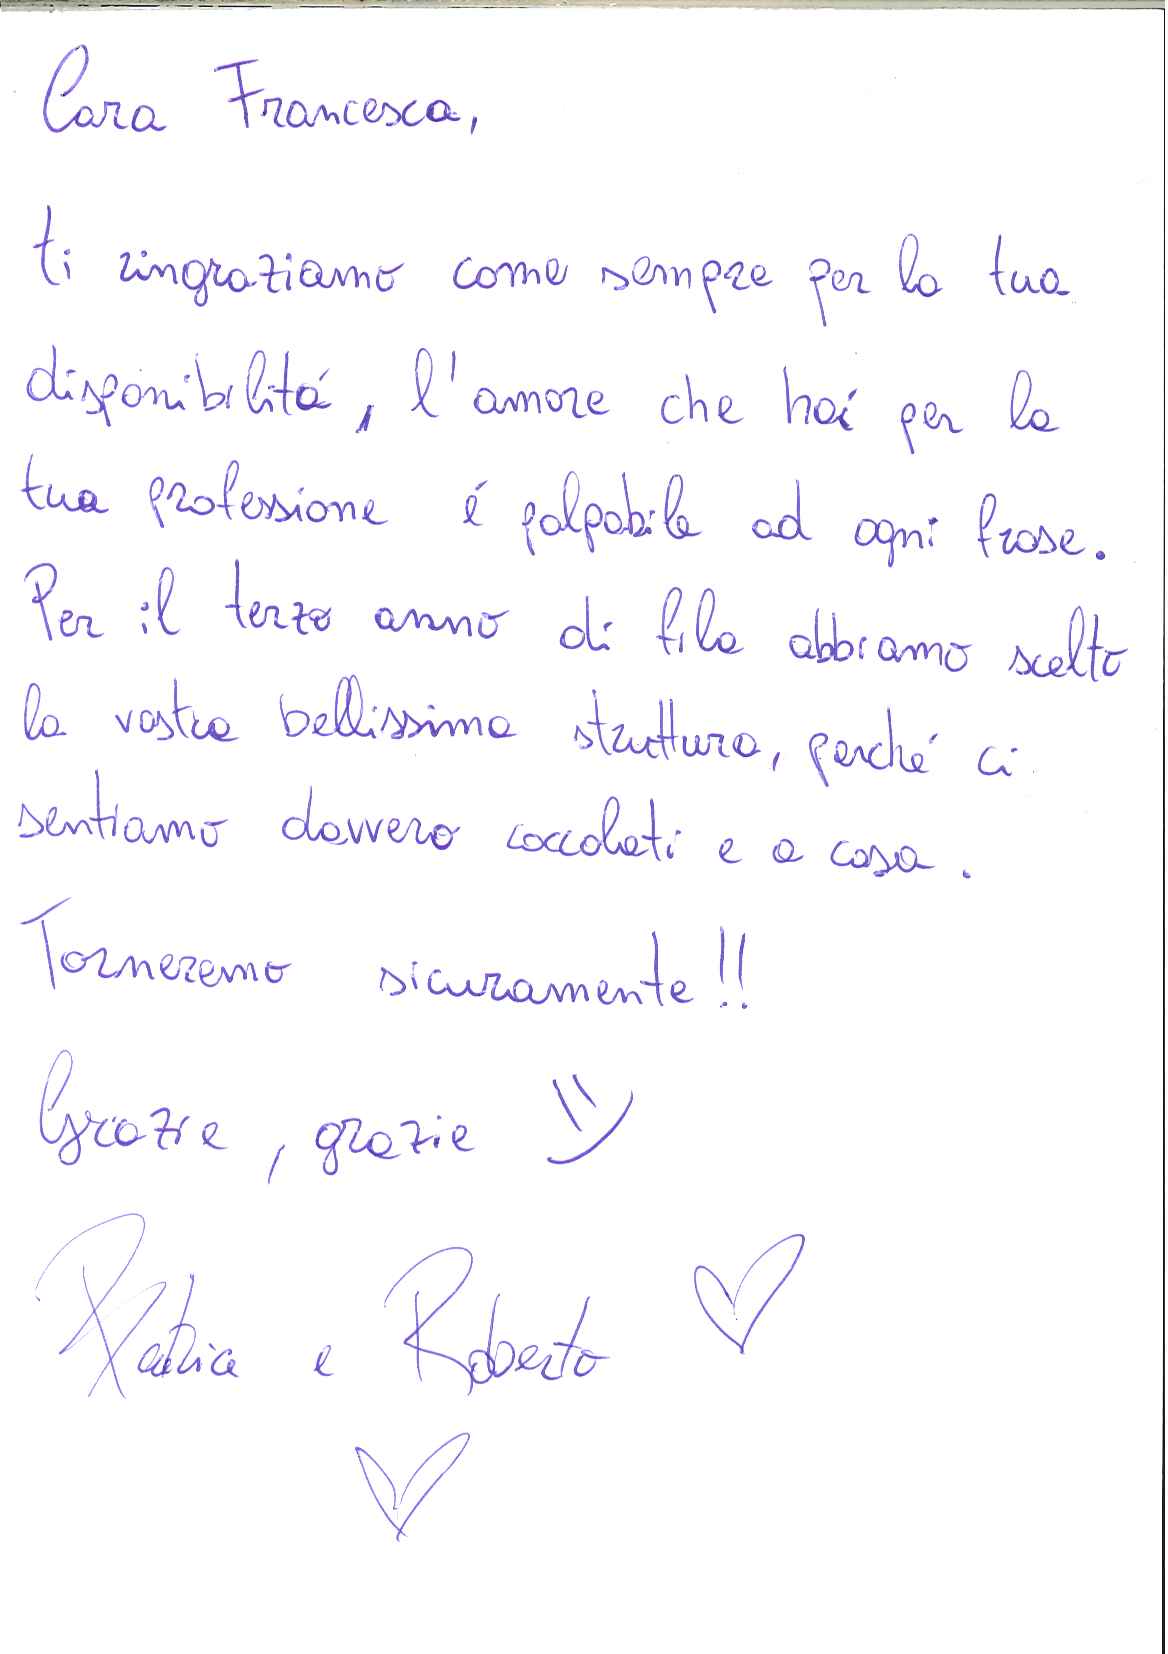 Cara Francesca,
ti ringraziamo come sempre per la tua
disponibilitá, l'amore che hai per la
tua professione é palpabile ad ogni frase.
Per il terzo anno di fila abbiamo scelto
la vostra bellissima struttura, perché ci
sentiamo davvero coccolati e a casa.
Torneremo sicuramente!!
Grazie, grazie
Patrica e Roberto